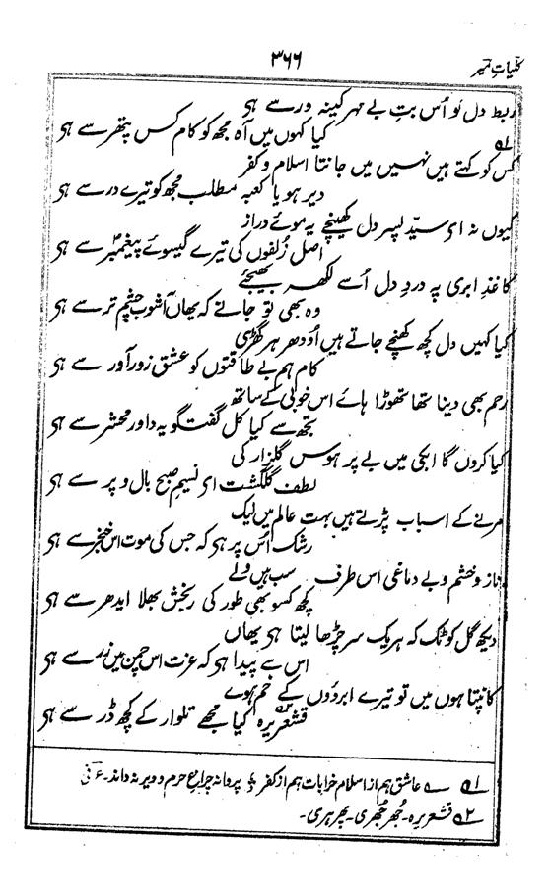 کلیاتِ میر
۳۶۶
ربط دل کو اُس بتِ بے مہر کینہ ور سے ہی
کیا کہوں میں آہ مجھ کو کام کس پتھر سے ہی
کس کو کہتے ہیں نہیں میں جانتا اسلام و کفر ؎۱
دیر ہو یا کعبہ مطلب مجھ کو تیرے در سے ہی
کیوں نہ ای سیّد پسر دل کھینچے یہ موئے دراز
اصل زلفوں کی تیرے گیسوئے پیغمبر سے ہی
کاغذِ ابری پہ دردِ دل اُسے لکھ بھیجئے
وہ بھی تو جانے کہ یھاں آشوبِ چشمِ تر سے ہی
کیا کہیں دل کچھ کھنچے جاتے ہیں اُودھر ہر گھڑی
کام ہم بے طاقتوں کو عشقِ زور آور سے ہی
رحم بھی دینا تھا تھوڑا ہائے اس خوبی کے ساتھ
تجھ سے کیا کل گفتگو یہ داورِ محشر سے ہی
کیا کروں گا ابکی میں بے پر ہوس گلزار کی
لطفِ گلگشت ای نسیمِ صبح بال و پر سے ہی
مرنے کے اسباب پڑتے ہیں بہت عالم میں لیک
رشک اُس پر ہی کہ جس کی موت اس خنجر سے ہی
ناز و خشم و بے دماغی اس طرف سب ہیں ولے
کچھ کسو بھی طور کی رنجش بھلا ایدھر سے ہی
دیکھ گل کو ٹک کہ ہریک سر چڑھا لیتا ہی یھاں
اس سے پیدا ہی کہ عزت اس چمن میں زر سے ہی
کانپتا ہوں میں تو تیرے ابروؤں کے خم ہوے
قشعریرہ ؎۲ کیا مجھے تلوار کے کچھ ڈر سے ہی
؎۱ ؎ عاشق ہم از اسلام خرابات ہم از کفر پروانہ چراغِ حرم و دیر نہ داند۔ عرفی
؎۲ قشعریرہ۔ جُھر جُھری۔ پھر ہری۔